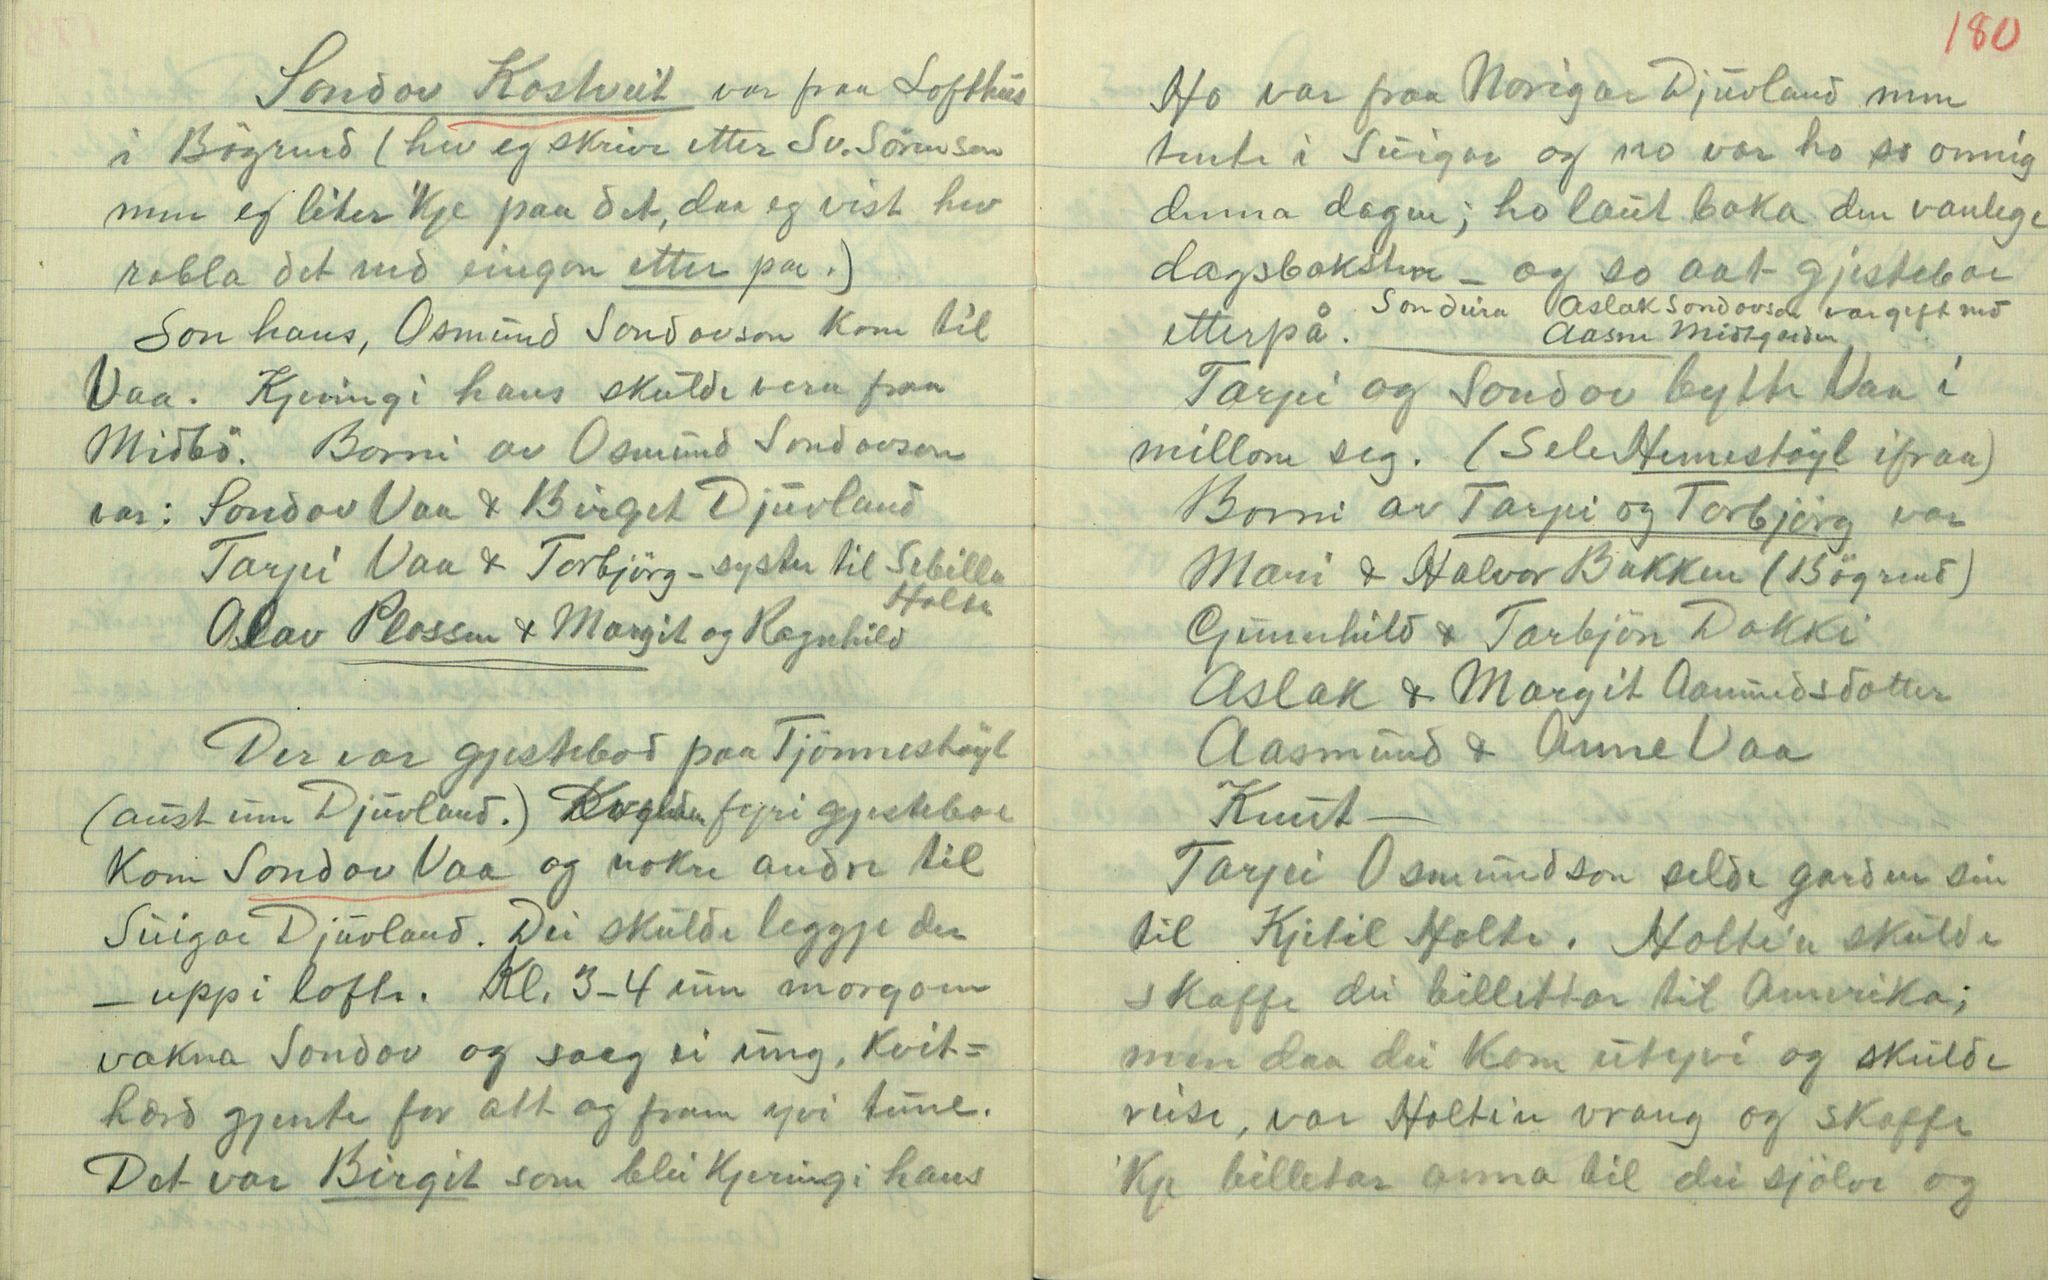 Sondov Kostveit var fraa Lofthus
i Bøgrend (hev eg skrive etter Sv. Sørenson
men eg liter 'kje paa det, daa eg vist hev
rabla det ned eingon etter paa.)
Son hans, Osmund Sondovson kom til
Vaa. Kjeringi hans skulde vera fraa
Midbö. Borni av Osmund Sondovson
var: Sondov Vaa & Birget Djuvland
Tarjei Vaa & Torbjörg - syster til Sebilla
Holte
Olav Plassen & Margit og Ragnhild
Der var gjestebod paa Tjönnestöyl
(aust um Djuvland.) fyri gjesteboe
kom Sondov Vaa og nokre andre til
Suigar Djuvland. Dei skulde leggje der
– uppi lofte. Kl. 3-4 um morgonen
vakna Sondov og saag ei ung, kvit=
hærd gjente for att og fram yvi tune.
Det var Birgit som blei kjeringi hans
180
Ho var fraa Norigar Djuvland men
tente i Suigar og no var ho so onnig
denna dagen; ho laut baka den vanlege
dagsbaksten – og so aat gjesteboe
etterpå.
Sondura Aslak Sondovson var gift med
Aasne Midtgarden
Tarjei og Sondov bytte Vaa i
millom seg. (Sele Hemestöyl ifraa)
Borni av Tarjei og Torbjörg var
Mari & Halvor Bakken (Bögrend)
Gunnhild & Tarbjön Dokki
Aslak & Margit Aamundsdotter
Aasmund & Anne Vaa
Knut –
Tarjei Osmundson selde garden sin
til Kjetil Holte. Holte'n skulde
skaffe dei billettar til Amerika;
men daa dei kom uteyvi og skulde
reise, var Holti'n vrang og skaffe
'kje billetar anna til dei sjölve og